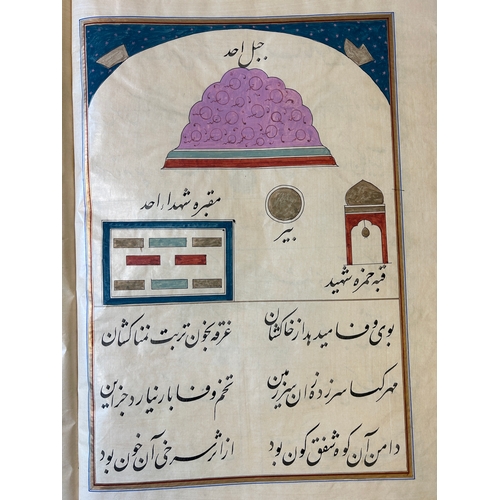 جبل احد
مقبره شهداء احد
بیر
قبه حمزه شهید
بوی وفا میدهد از خاکشان غرقه بخون تربت نمناکشان
مهر کیا سر زده زان سرزمین تخم وفا بار نیارد جز این
دامن آن کوه شفق کون بود از اثر سرخی آن خون بود